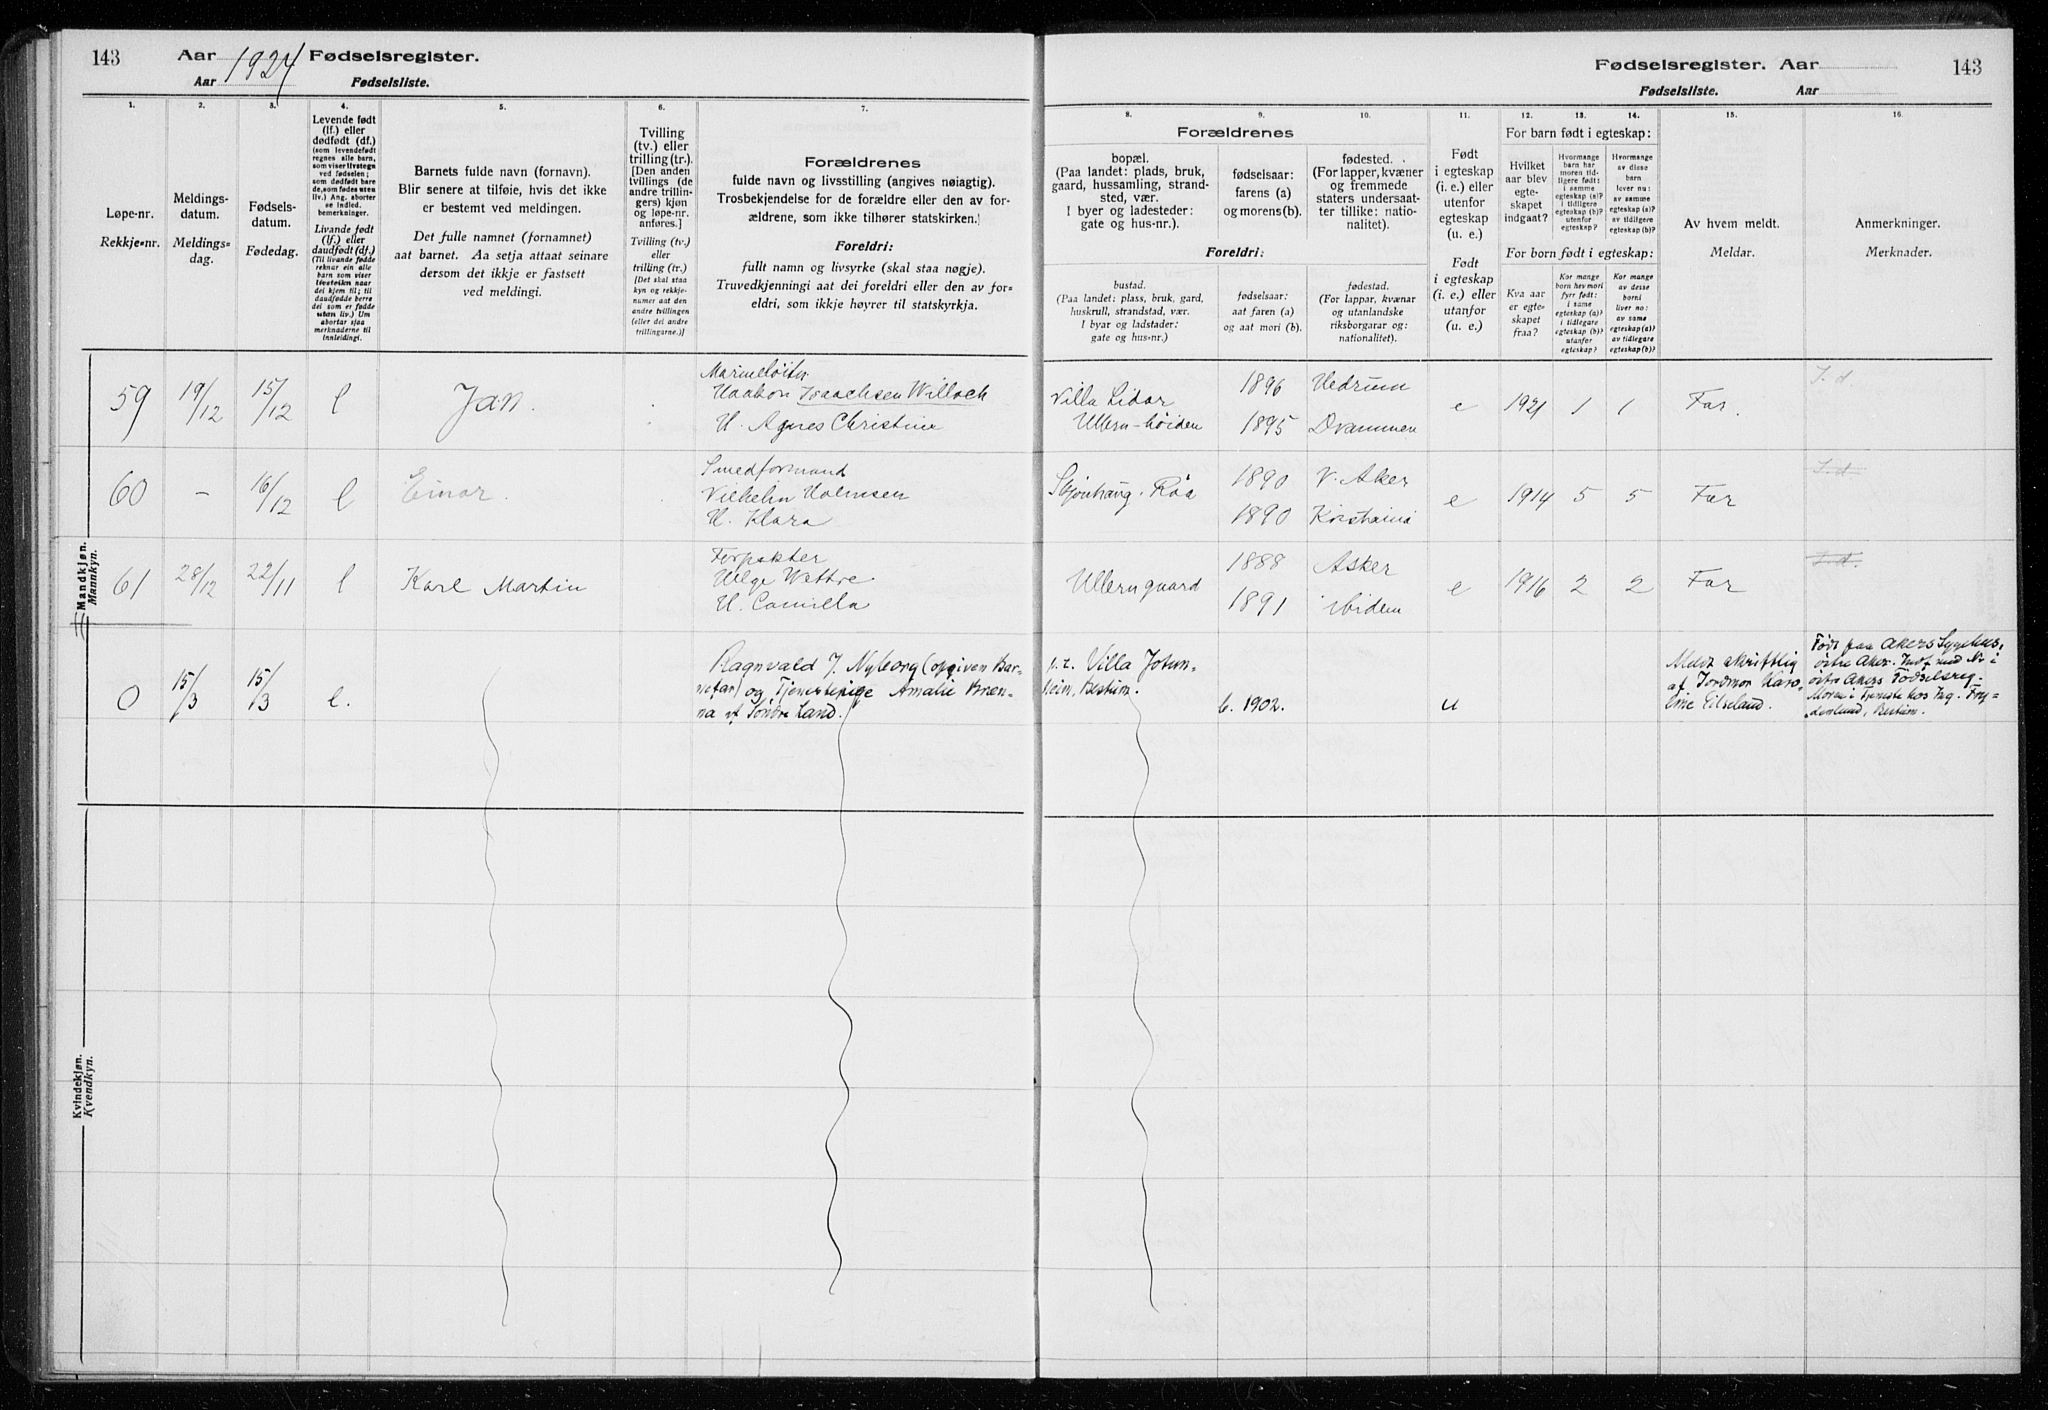 143
Aar 1924 Fødselsregister.
Aar Fødselsliste.
1.
2.
3.
4.
5.
6.
7.
Løpe-nr.
Rekkje-nr.
Meldings-
datum.
Meldings-
dag.
Fødsels-
datum.
Fødedag.
Levende født
(lf.) eller
dødfødt (df.)
(som levendefødt
regnes alle barn,
som viser livstegn
ved fødselen;
som dødfødt bare
de, som fødes uten
liv.) Ang. aborter
se indled.
bemerkninger.
Livande født
(lf.) eller
daudfødt (df.)
(Til livande fødde
reknar ein alle
barn som viser
livsteikn naar
dei kjem til; til
daudfødde berre
dei som er fødde
utan liv.) Um
abortar sjaa
merknaderne til
innleidingi.
Barnets fulde navn (fornavn).
Blir senere at tilføie, hvis det ikke
er bestemt ved meldingen.
Det fulle namnet (fornamnet)
aat barnet. Aa setja attaat seinare
dersom det ikkje er fastsett
ved meldingi.
Tvilling
(tv.) eller
trilling (tr.).
[Den anden
tvillings (de
andre trillin-
gers) kjøn
og løpe-nr.
anføres.]
Tvilling (tv.)
eller
trilling (tr.)
[Det skal staa
kyn og rekkje-
numer aat den
andre tvillingen
(eller dei andre
trillingarne.)]
Forældrenes
fulde navn og livsstilling (angives nøiagtig).
Trosbekjendelse for de forældre eller den av for-
ældrene, som ikke tilhører statskirken.
Foreldri:
fullt namn og livsyrke (skal staa nøgje).
Truvedkjenningi aat dei foreldri eller den av for-
eldri, som ikkje høyrer til statskyrkja.
Mandkjøn.
Mannkyn.
59
19/12
15/12
l
Jan.
Marineløitn.
Haakon Isaachsen Willoch
H. Agnes Christine
60
-
16/12
l
Einar.
Smedformand
Vilhelm Holmsen
H. Klara
61
28/12
22/11
l
Karl Martin
Forpakter
Helge Wettre
H. Camilla
0
15/3
15/3
l.
Ragnvald J. Nyborg (opgiven Bar-
nefar) og Tjenestepige Amalie Bræn-
na af Søndre Land.
Kvindekjøn.
Kvendkyn.
Fødselsregister. Aar
143
Fødselsliste. Aar
8.
9.
10.
11.
12.
13.
14.
15.
16.
Forældrenes
bopæl.
(Paa landet: plads, bruk,
gaard, hussamling, strand-
sted, vær.
I byer og ladesteder:
gate og hus-nr.).
fødselsaar:
farens (a)
og morens (b).
fødested.
(For lapper, kvæner
og fremmede
staters undersaat-
ter tillike: natio-
nalitet).
Foreldri:
bustad.
(Paa landet: plass, bruk, gard,
huskrull, strandstad, vær.
I byar og ladstader:
gate og hus-nr.)
fødselsaar:
aat faren (a)
og aat mori (b).
fødestad.
(For lappar, kvænar
og utanlandske
riksborgarar og:
nationalitet).
Født
i egteskap
(i. e.) eller
utenfor
egteskap
(u. e.)
Født
i egteskap
(i. e.) eller
utanfor
(u. e.)
For barn født i egteskap:
Hvilket
aar blev
egte-
skapet
indgaat?
Hvormange
barn har
moren tid-
ligere født:
i samme
egteskap (a)?
i tidligere
egteskap (b)?
utenfor
egteskap?
Hvormange
av disse
barn
lever nu:
av samme
egteskap (a)?
av tidligere
egteskap (b)?
For barn født i egteskap:
Kva aar
er egte-
skapet
fraa?
Kor mange
born hev mori
fyrr født:
i same
egteskap (a)?
i tidlegare
egteskap (b)?
utanfor
egteskap?
Kor mange
av desse
borni
liver no:
av same
egteskap (a)?
av tidlegare
egteskap (b)?
Av hvem meldt.
Meldar.
Anmerkninger.
Merknader.
Villa Lidar
Ullern-høiden
1896
1895
Hedrum
Drammen
e
1921
1
1
Far.
I. d.
Røa
1890
1890
V. Aker
e
1914
5
5
Far
I. d.
Ullern gaard
1888
1891
Asker
ibidem
e
1916
2
2
Far
I. d.
p. t. Villa Jotun-
heim, Bestum.
b. 1902.
u
Meldt skriftlig
af Jordmor Karo-
line Eilseland.
Født paa Akers Sygehus,
østre Aker. Indf. med Nr i
østre Akers Fødselsreg.
Moren i Tjeneste hos Ing. Fry-
denlund, Bestum.